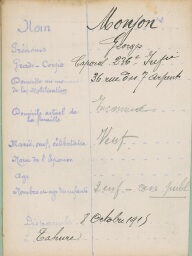 Nom Monjon
Prénoms Georges
Grade - Corps Caporal 236e Infie
Domicile au moment 36 rue des 7 arpents
de la mobilisation
Domicile actuel de
la famille
Marié, veuf, célibataire Veuf.
Nom de l'épouse
Age
Nombre et age des enfants Veuf - sans
Disparu 8 Octobre 1915
à Tahure